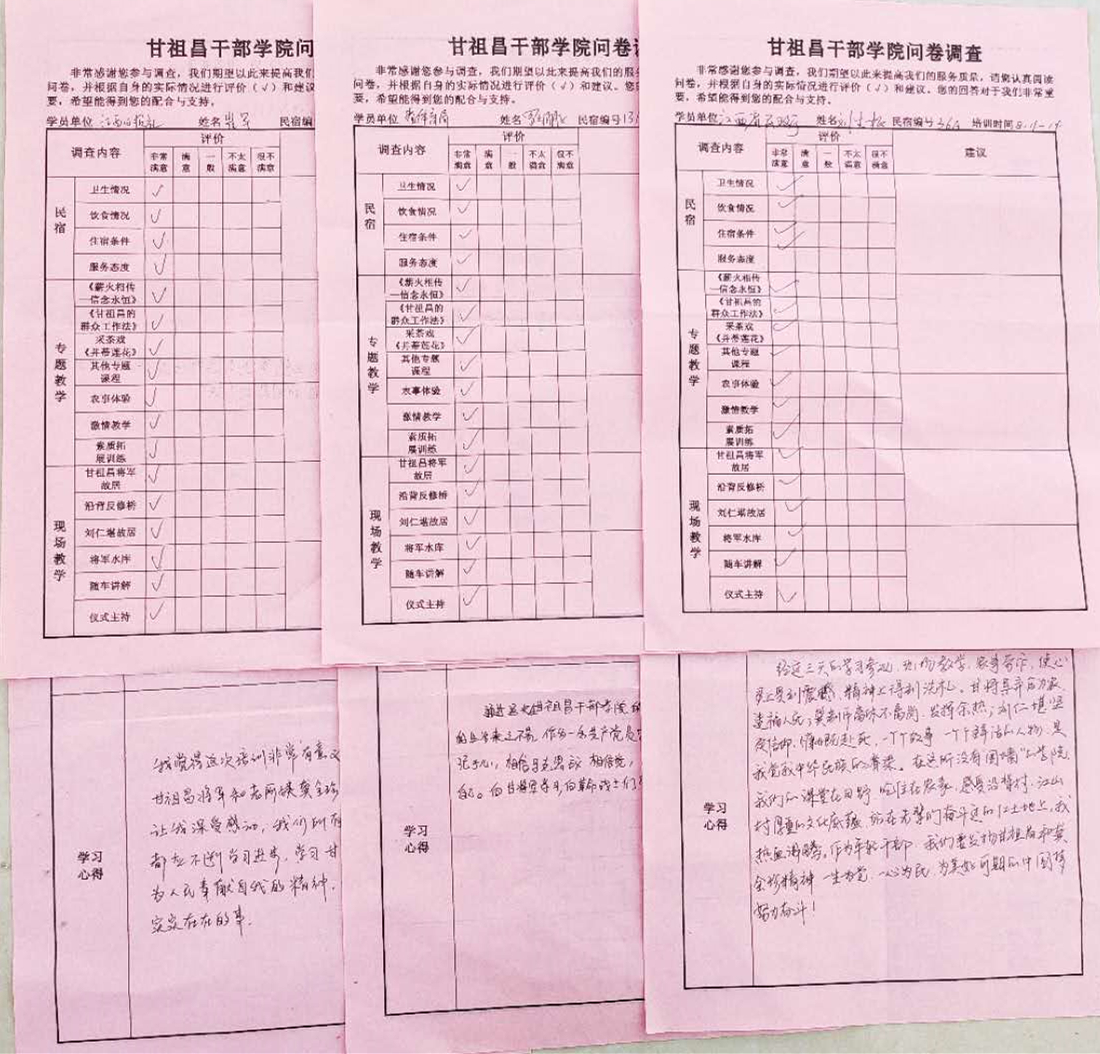 甘祖昌干部学院问
非常感谢您参与调查，我们期望以此来提高我们
问卷，并根据自身的实际情况进行评价（√）和建议
要，希望能得到您的配合与支持。
学员单位 江西日报社 姓名 民宿编
调查内容
评价
非常满意
满意
一般
不太满意
很不满意
民宿
卫生情况
饮食情况
住宿条件
服务态度
专题教学
《薪火相传
—信念永恒》
《甘祖昌的
群众工作法》
采茶戏
《并蒂莲花》
其他专题
课程
农事体验
激情教学
素质拓
展训练
现场教学
甘祖昌将军
故居
沿背反修桥
刘仁堪故居
将军水库
随车讲解
仪式主持
甘祖昌干部学院问卷
非常感谢您参与调查，我们期望以此来提高我们的服
问卷，并根据自身的实际情况进行评价（√）和建议。您的
要，希望能得到您的配合与支持。
学员单位 姓名 民宿编号
调查内容
评价
非常满意
满意
一般
不太满意
很不满意
民宿
卫生情况
饮食情况
住宿条件
服务态度
专题教学
《薪火相传
—信念永恒》
《甘祖昌的
群众工作法》
采茶戏
《并蒂莲花》
其他专题
课程
农事体验
激情教学
素质拓
展训练
现场教学
甘祖昌将军
故居
沿背反修桥
刘仁堪故居
将军水库
随车讲解
仪式主持
甘祖昌干部学院问卷调查
非常感谢您参与调查，我们期望以此来提高我们的服务质量，请您认真阅读
问卷，并根据自身的实际情况进行评价（√）和建议。您的回答对于我们非常重
要，希望能得到您的配合与支持。
学员单位 江西省 姓名 民宿编号 培训时间
调查内容
评价
建议
非常满意
满意
一般
不太满意
很不满意
民宿
卫生情况
饮食情况
住宿条件
服务态度
专题教学
《薪火相传
—信念永恒》
《甘祖昌的
群众工作法》
采茶戏
《并蒂莲花》
其他专题
课程
农事体验
激情教学
素质拓
展训练
现场教学
甘祖昌将军
故居
沿背反修桥
刘仁堪故居
将军水库
随车讲解
仪式主持
学习
心得
我觉得这次培训非常有意义
甘祖昌将军和老阿姨龚全珍
让我深受感动，我们所有
都应不断学习进步，学习甘
为人民奉献自我的精神，
实实在在的事．
学习
心得
甘祖昌干部学院
作为一名共产党员
相信
自己。向甘将军等
学习
心得
经过三天的学习参观，现场教学，农事劳作，使心
灵上受到震撼，精神上得到洗礼。甘将军弃官为农，
造福人民；龚老师离休不离岗，发挥余热；刘仁堪坚
定信仰，慷慨赴死，一个个故事，一个个鲜活的人物，是
我党我中华民族的脊梁。在这所没有围墙的学院，
我们的课堂在田野，吃住在农家，感受沿背村、江山
村厚重的文化底蕴，站在先辈们奋斗过的红土地上，我
热血沸腾。作为年轻干部，我们要发扬甘祖昌和龚
全珍精神，一生为党，一心为民，为美好可期的中国梦
努力奋斗！